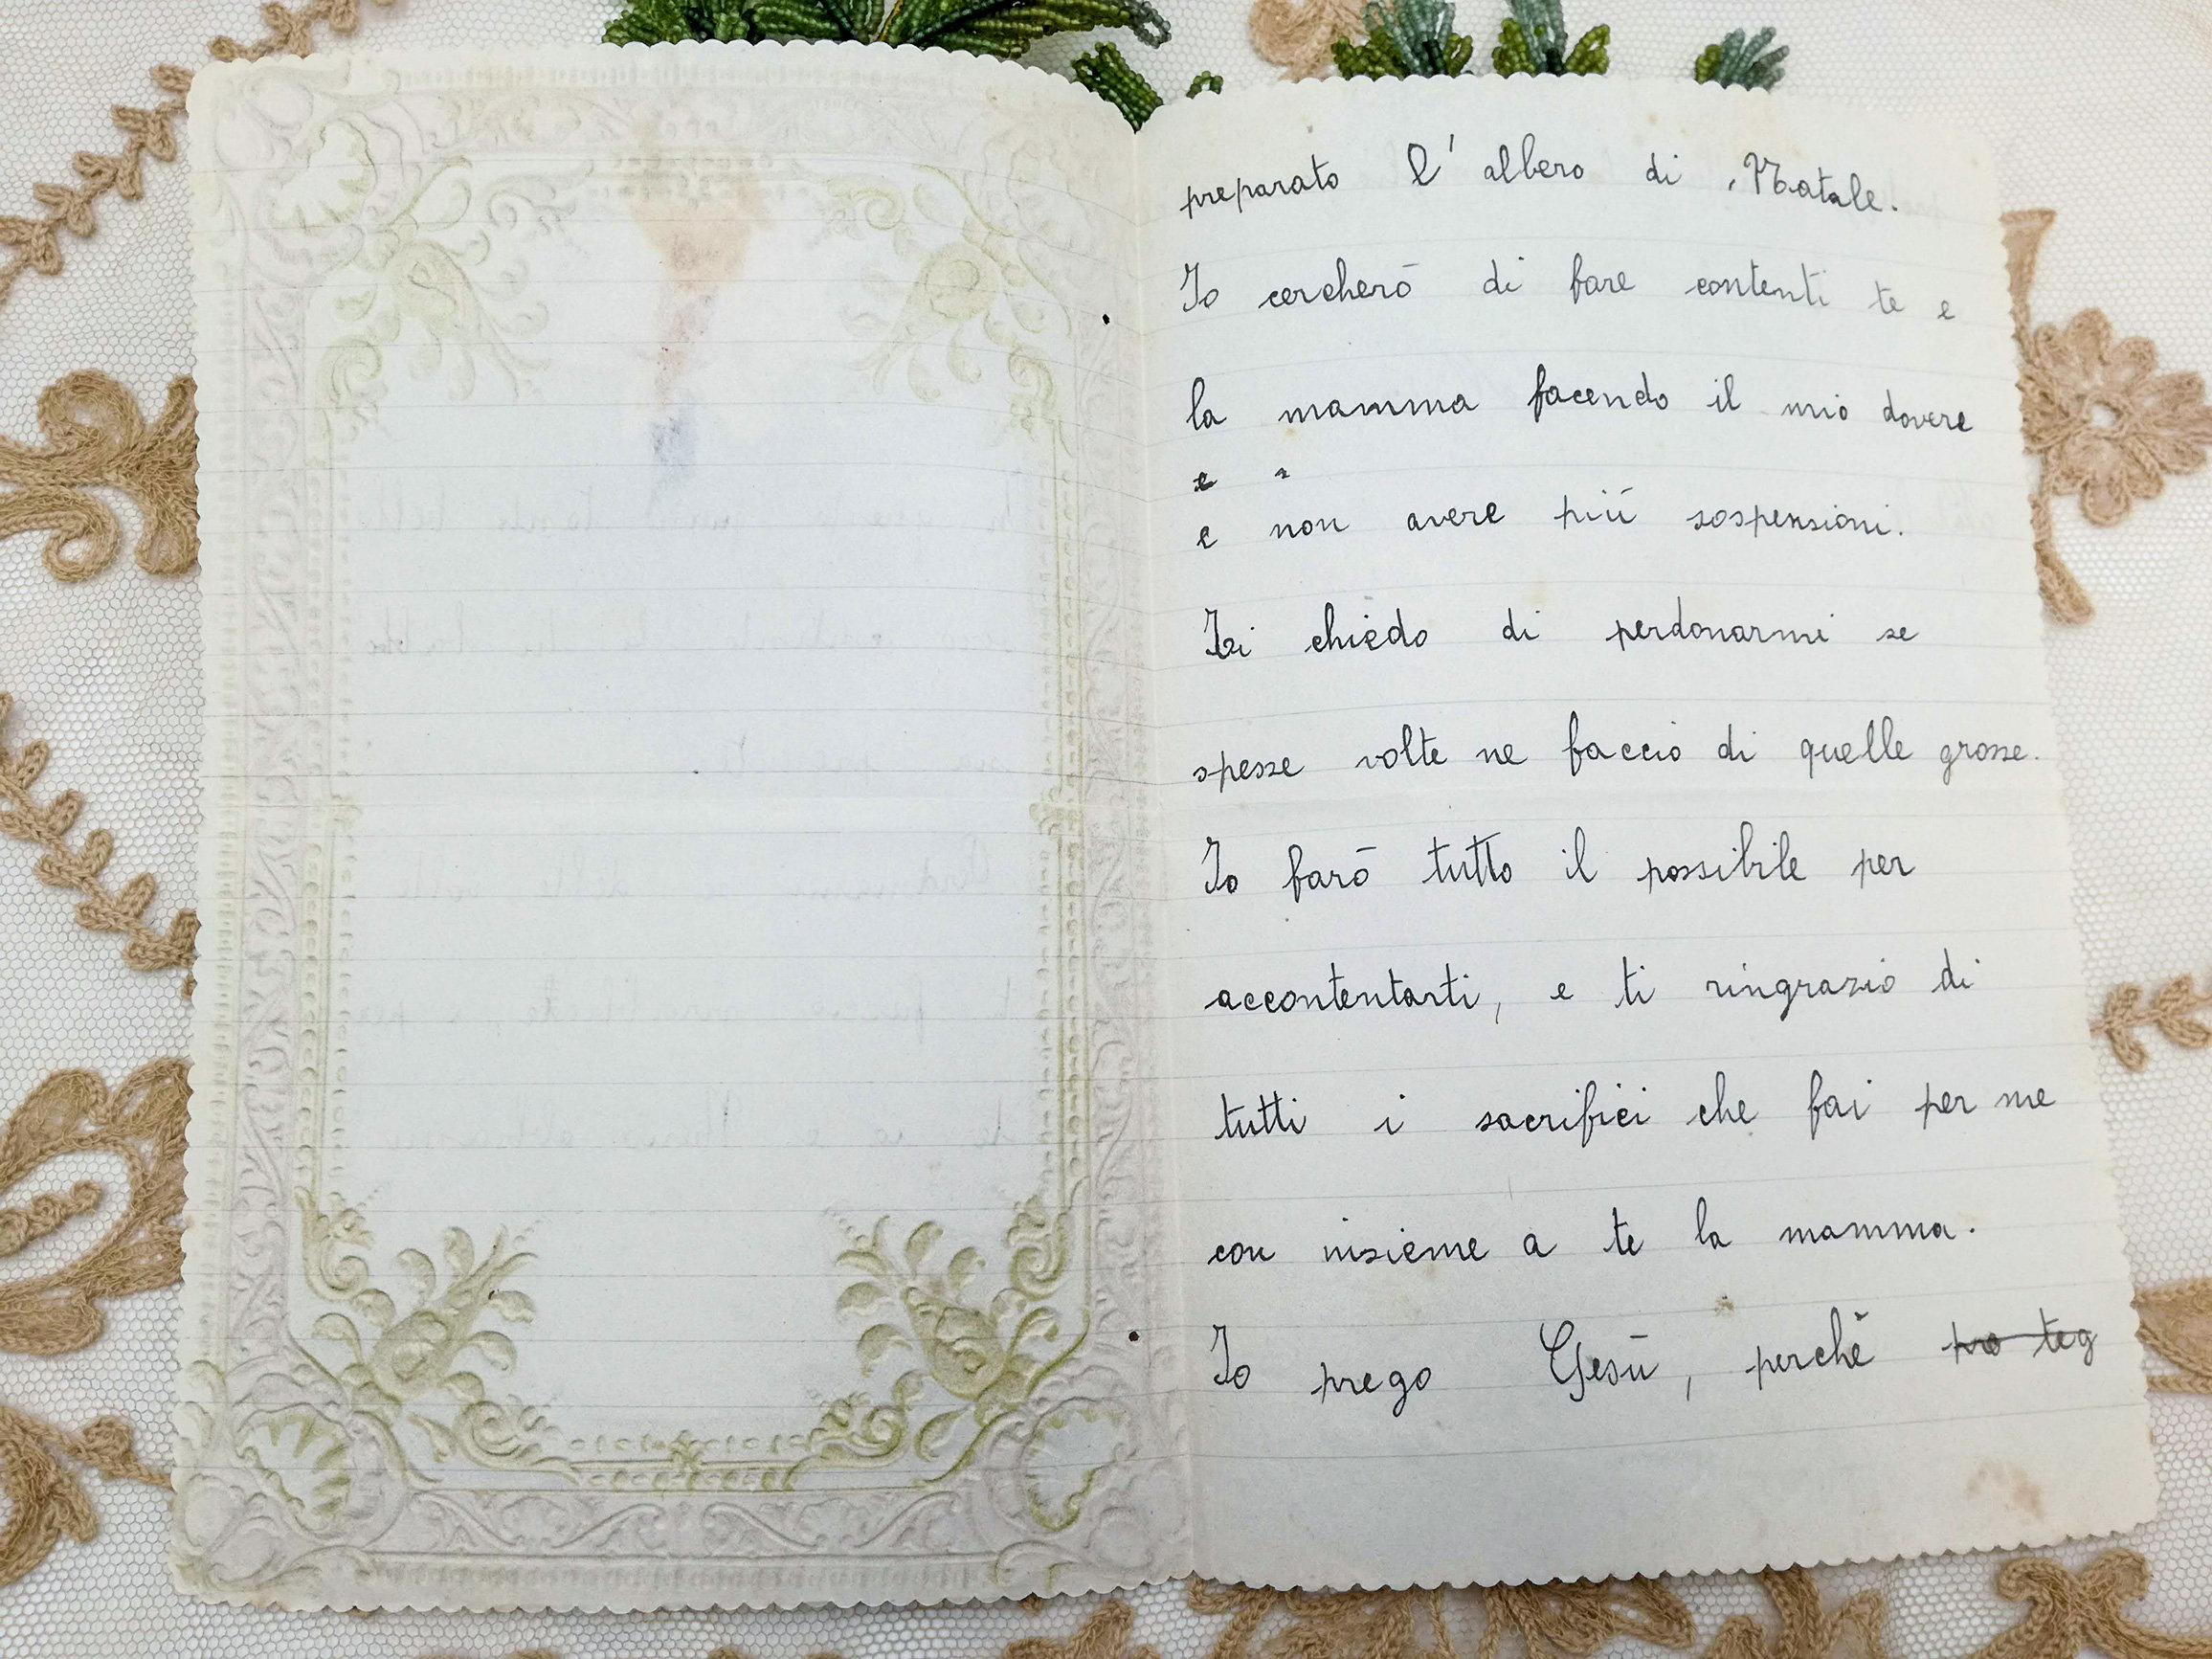 preparato l' albero di Natale.
Io cercherò di fare contenti te e
la mamma facendo il mio dovere
e
e non avere più sospensioni.
Ti chiedo di perdonarmi se
spesse volte ne faccio di quelle grosse.
Io farò tutto il possibile per
accontentarti, e ti ringrazio di
tutti i sacrifici che fai per me
con insieme a te la mamma.
Io prego Gesù, perchè pro teg